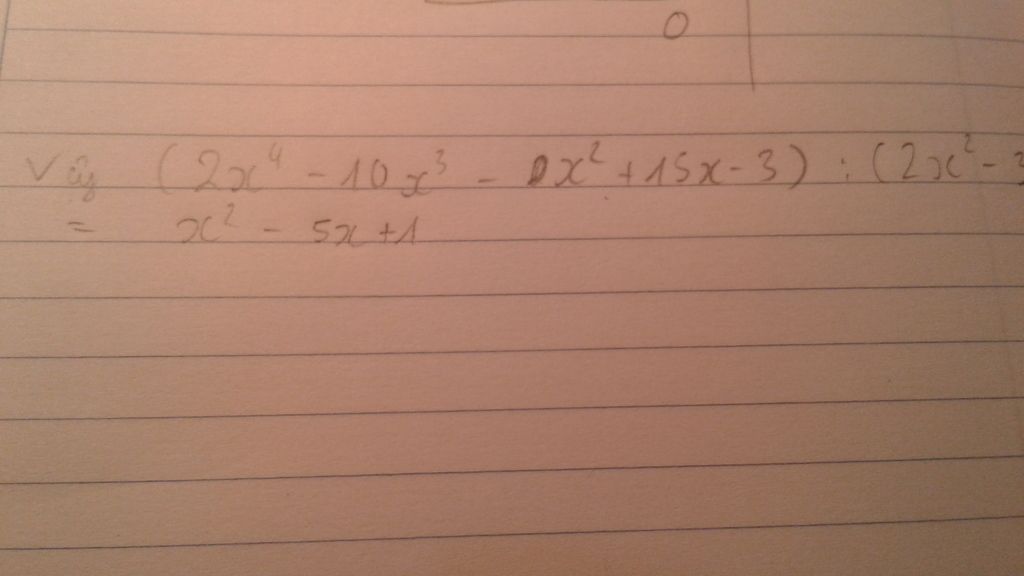 0
Vậy (2x⁴ - 10x³ - x² + 15x - 3) : (2x² - 3
= x² - 5x + 1